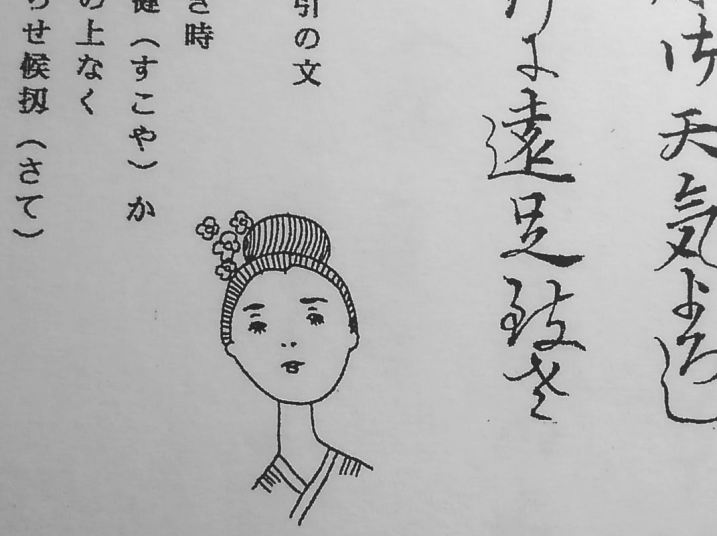 天気よろし
遠足致さ
引の文
時
健（すこや）か
の上なく
らせ候扨（さて）